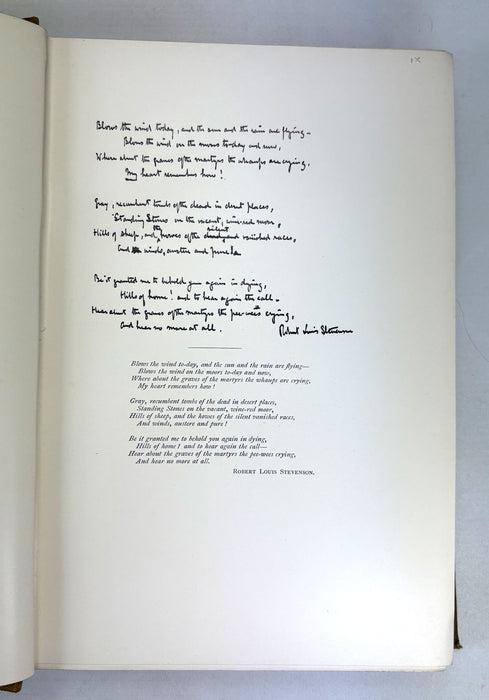 IX
Blows the wind today, and the sun and the rain are flying—
Blows the wind on the moors to-day and now,
Where about the graves of the martyrs the whaups are crying,
My heart remembers how!
Gray, recumbent tombs of the dead in desert places,
Standing Stones on the vacant, wine-red moor,
Hills of sheep, and the howes of the silent vanished races,
And winds, austere and pure
Be it granted me to behold you again in dying,
Hills of home! and to hear again the call—
Hear about the graves of the martyrs the pee-wees crying,
And hear no more at all.
Robert Louis Stevenson
Blows the wind to-day, and the sun and the rain are flying—
Blows the wind on the moors to-day and now,
Where about the graves of the martyrs the whaups are crying,
My heart remembers how!
Gray, recumbent tombs of the dead in desert places,
Standing Stones on the vacant, wine-red moor,
Hills of sheep, and the howes of the silent vanished races,
And winds, austere and pure!
Be it granted me to behold you again in dying,
Hills of home! and to hear again the call—
Hear about the graves of the martyrs the pee-wees crying,
And hear no more at all.
ROBERT LOUIS STEVENSON.